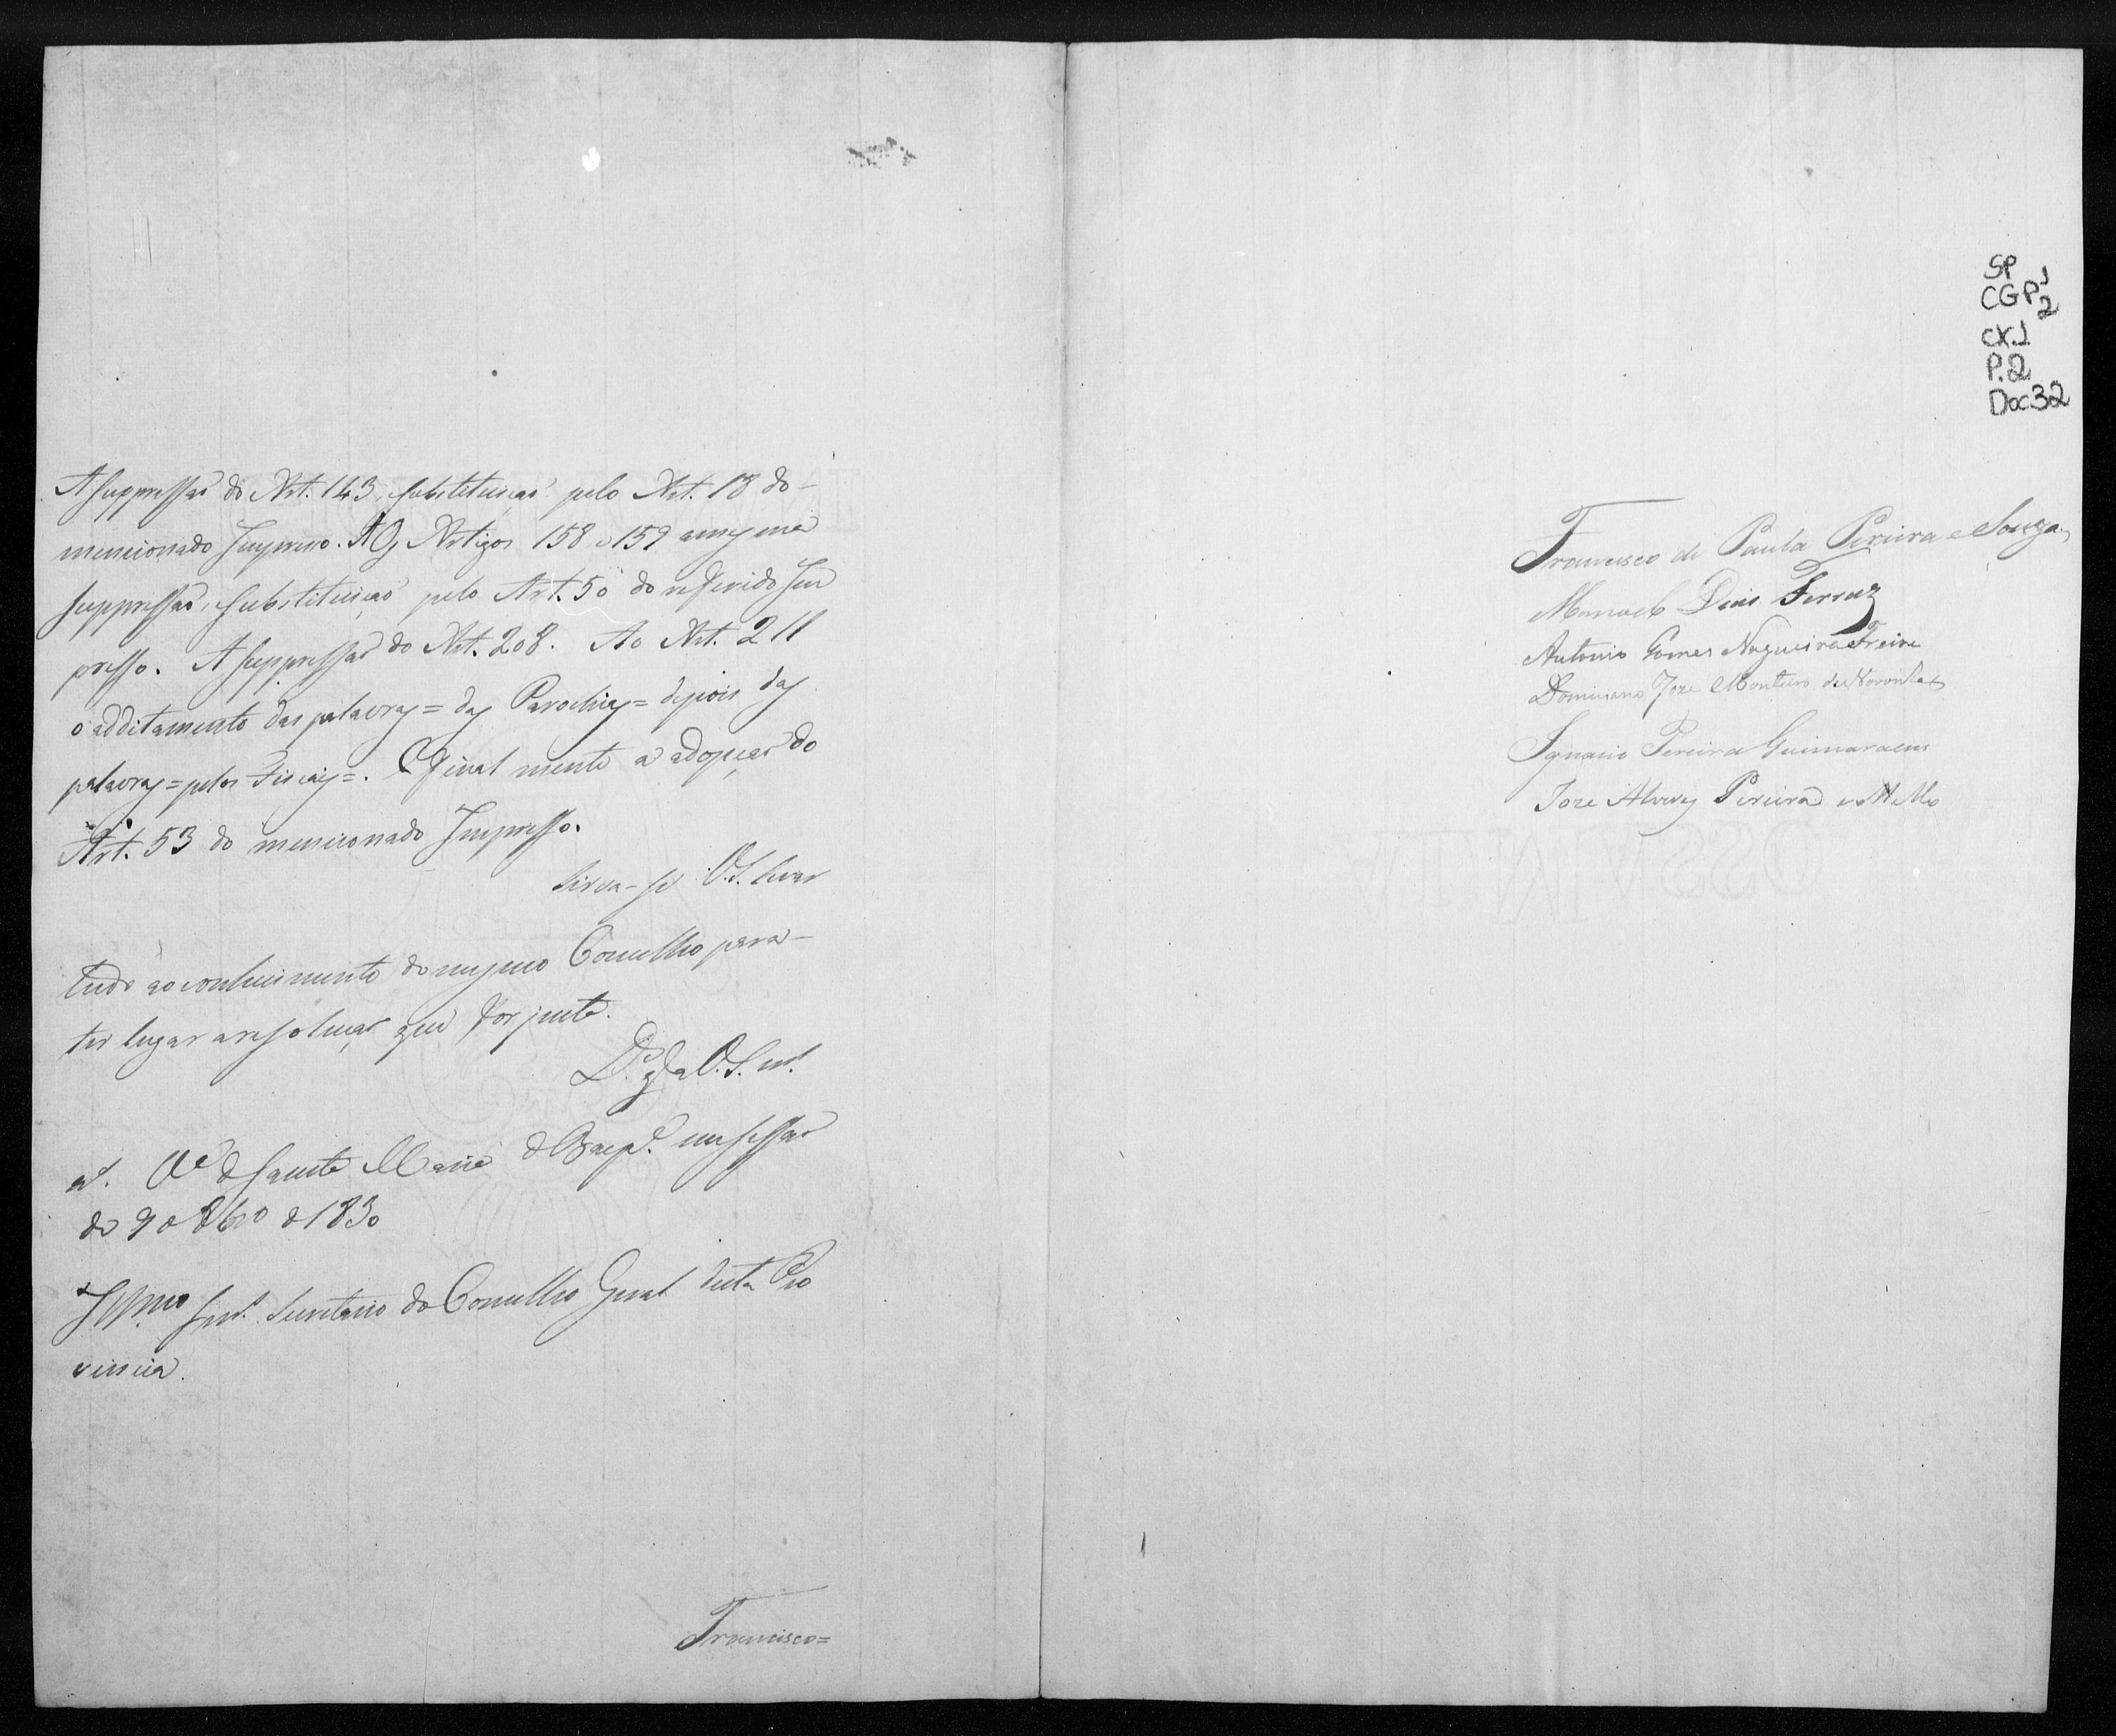 A suppressaõ do Art. 143, e substituiçaõ pelo Art. 18 do-
mencionado Impresso. Aos Artigos 158 e 159 a mesma
suppressaõ, e substituiçaõ pelo Art. 50 do referido Im
presso. A suppressaõ do Art. 208. Ao Art. 211
o additamento das palavras = das Parochias = depois das
palavras = pelos Fiscaes =. E final mente a adopçaõ do
Art. 53 do mencionado Impresso.
Sirva-se V.S. levar
tudo ao conhecimento do mesmo Concelho para-
ter lugar a resoluçaõ que for justa.
D.s g.e a V.S. m.s
a.s V.a de Santa Maria de Baep.di em sessaõ
de 9 de 8bro de 1830
Illmo Snr. Secretario do Concelho Geral desta Pro
vincia.
Francisco=
SP
CGP 1
2
CX.1
P.2
Doc 32
Francisco de Paula Pereira e Souza
Manoel Dias Ferraz
Antonio Gomes Nogueira Freire
Domiciano Joze Monteiro de Noronha
Ignacio Pereira Guimaraens
Joze Alves Pereira e Mello